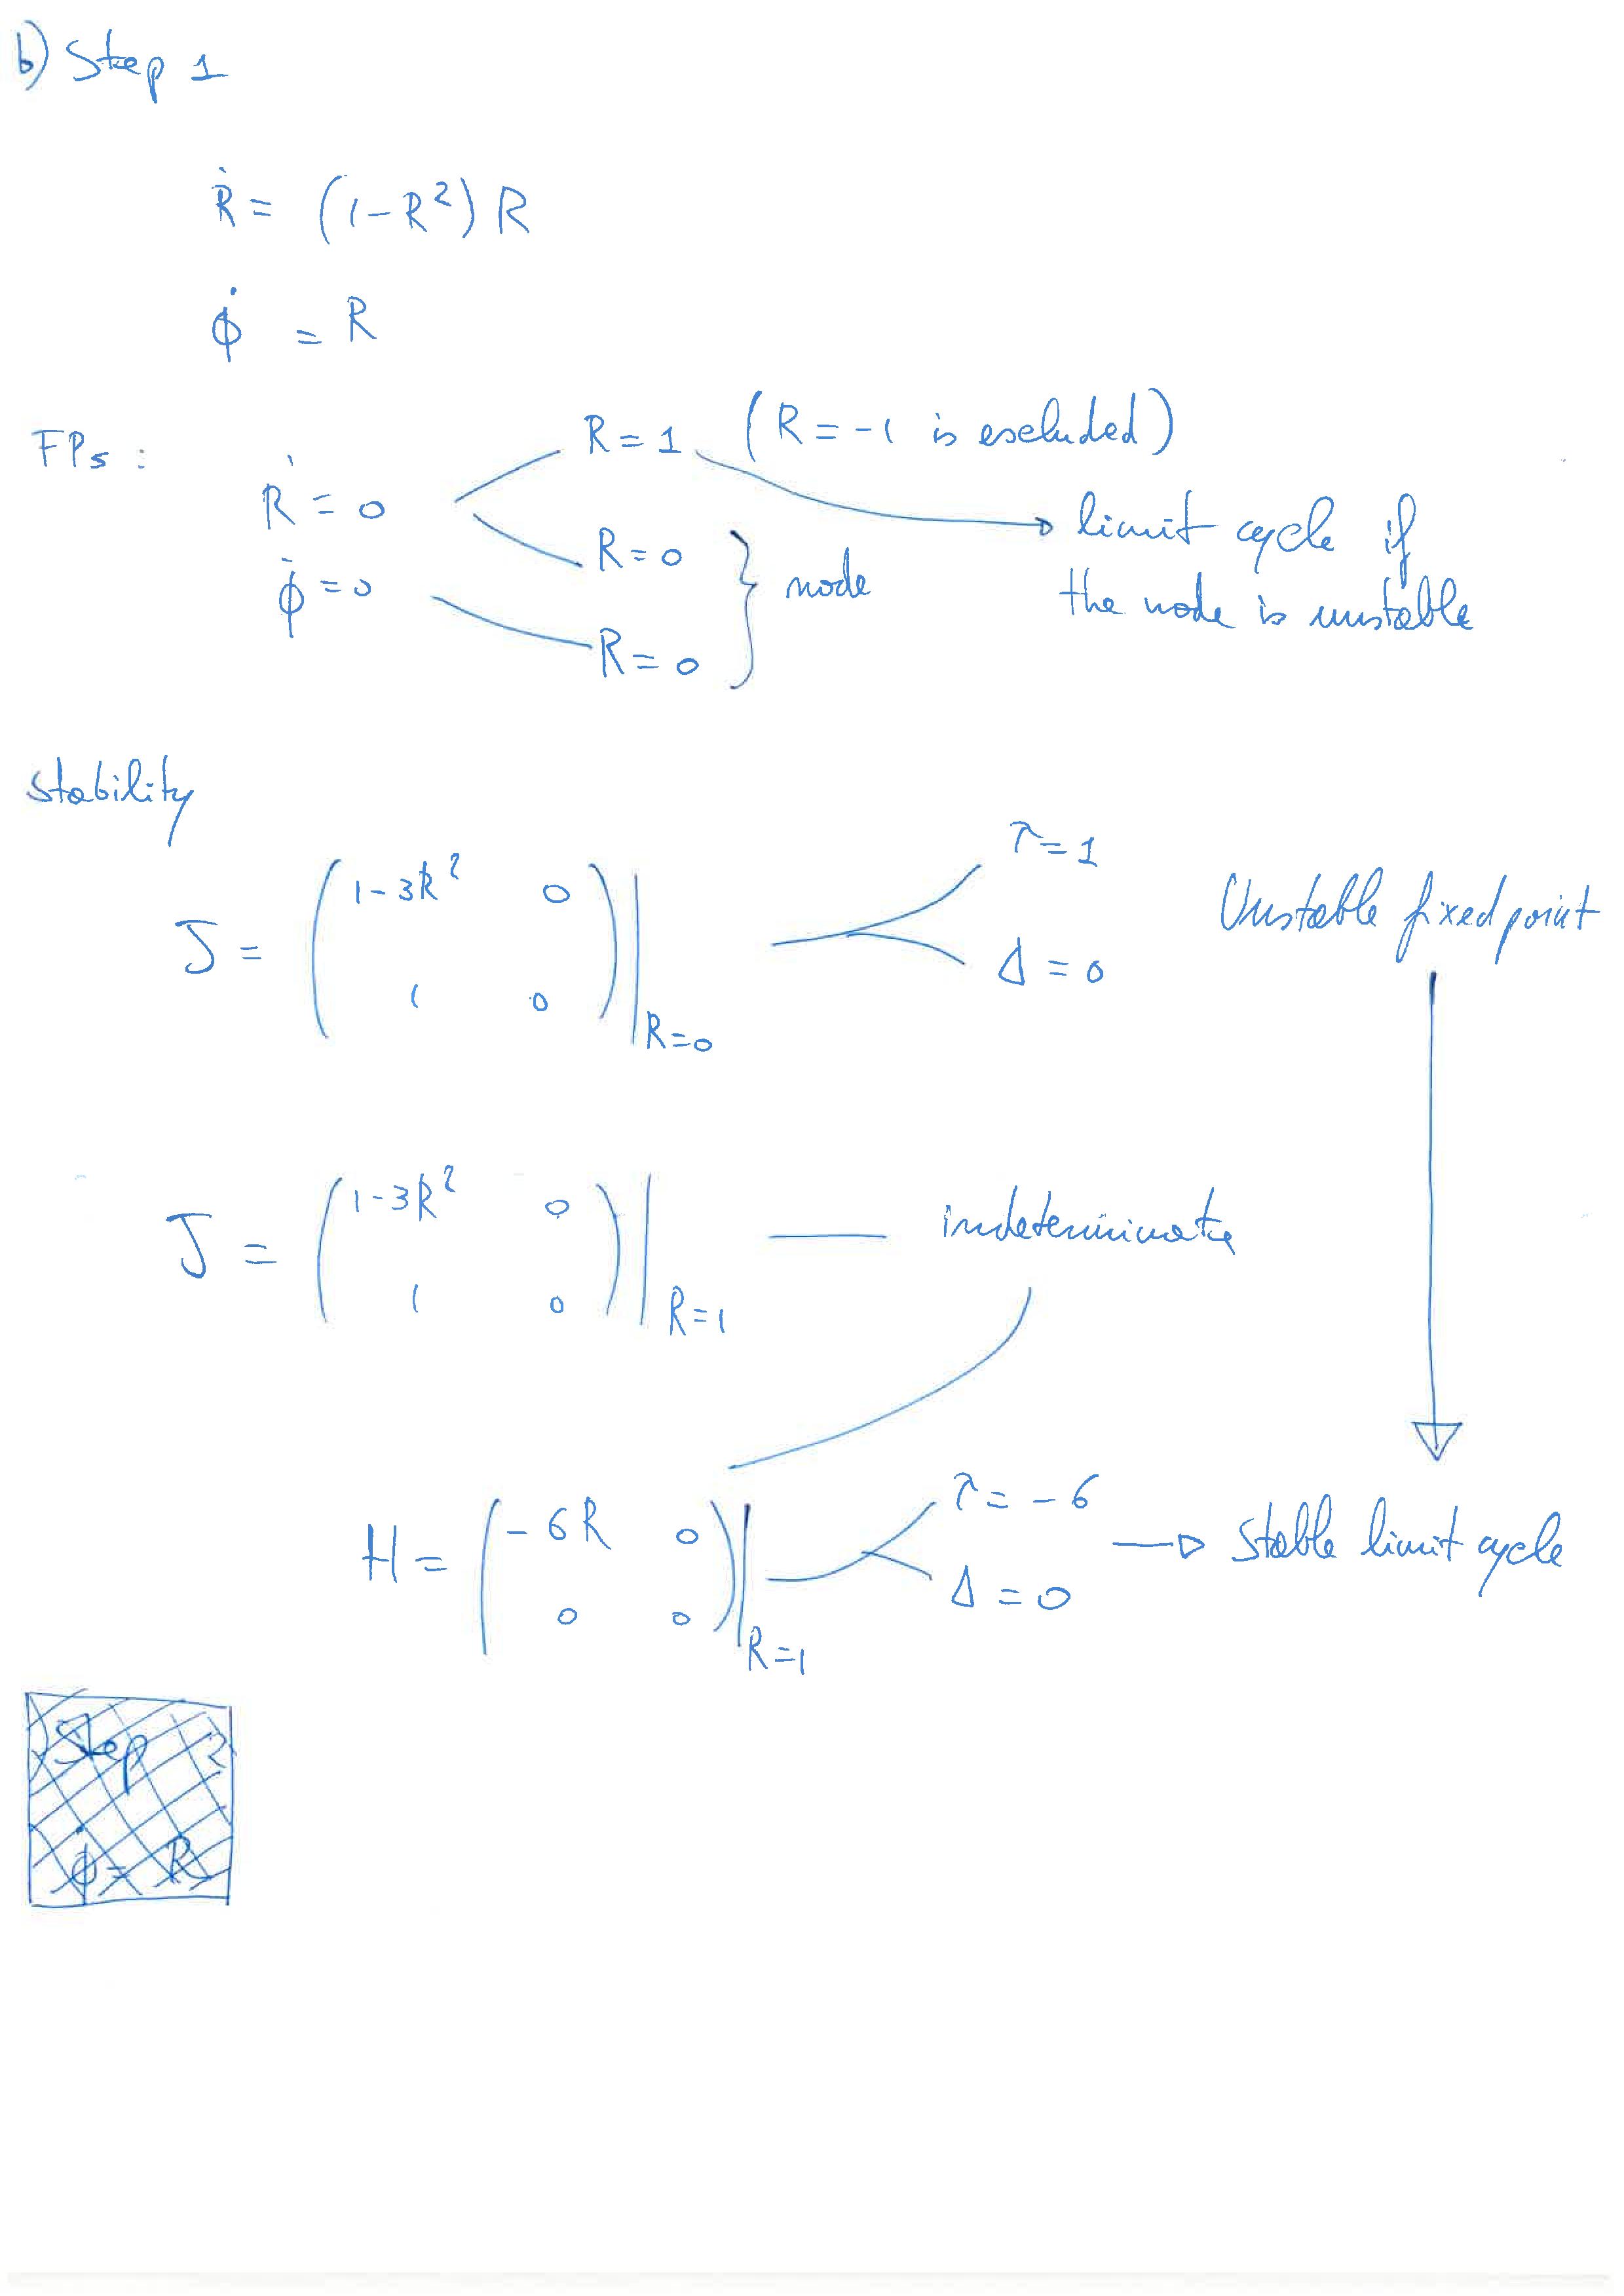 b) Step 1
Ṙ = (1-R²) R
ϕ̇ = R
FPs :
R = 1 (R = -1 is escluded)
Ṙ = 0
limit cycle if
R = 0
node
the node is unstable
ϕ̇ = 0
R = 0
stability
τ = 1
J = ( 1-3R² 0
1 0 ) |R=0
Unstable fixed point
Δ = 0
J = ( 1-3R² 0
1 0 ) |R=1
indeterminate
H = ( -6R 0
0 0 ) |R=1
τ = -6
Δ = 0
→ Stable limit cycle
Step 2
ϕ̇ = R